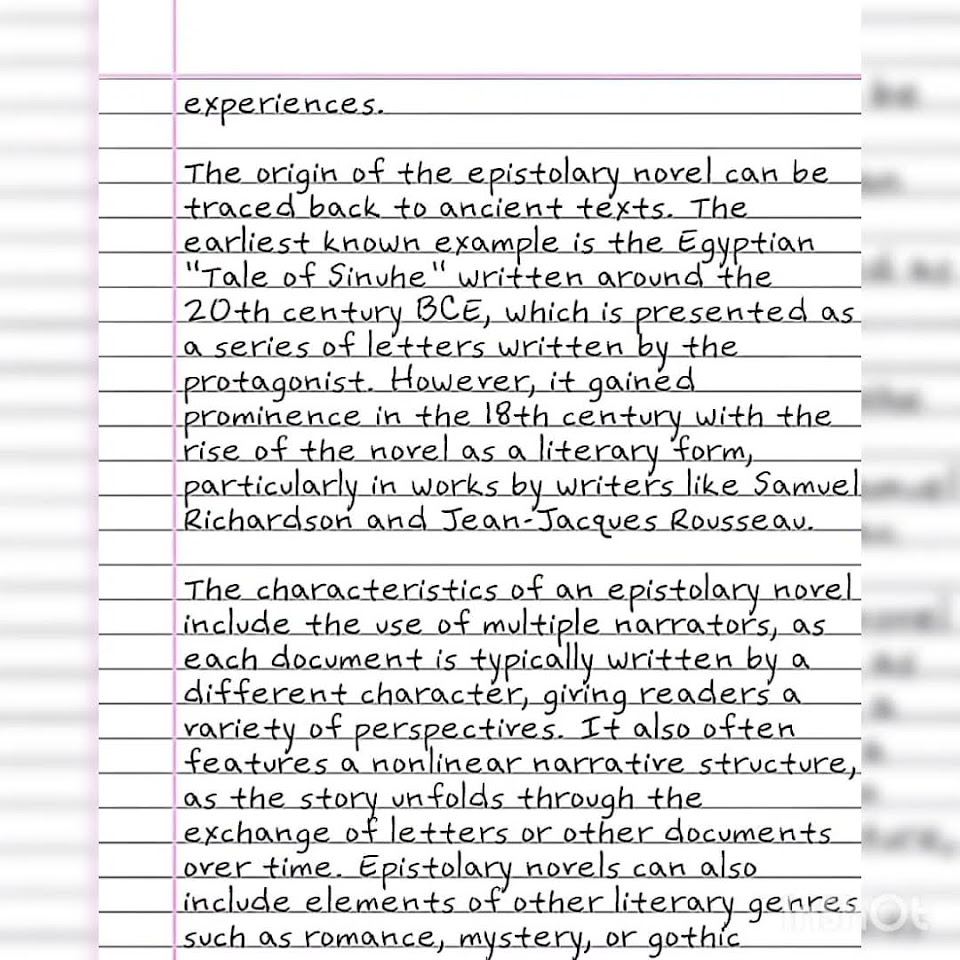 experiences.
The origin of the epistolary novel can be
traced back to ancient texts. The
earliest known example is the Egyptian
"Tale of Sinuhe" written around the
20th century BCE, which is presented as
a series of letters written by the
protagonist. However, it gained
prominence in the 18th century with the
rise of the novel as a literary form,
particularly in works by writers like Samuel
Richardson and Jean-Jacques Rousseau.
The characteristics of an epistolary novel
include the use of multiple narrators, as
each document is typically written by a
different character, giving readers a
variety of perspectives. It also often
features a nonlinear narrative structure,
as the story unfolds through the
exchange of letters or other documents
over time. Epistolary novels can also
include elements of other literary genres
such as romance, mystery, or gothic